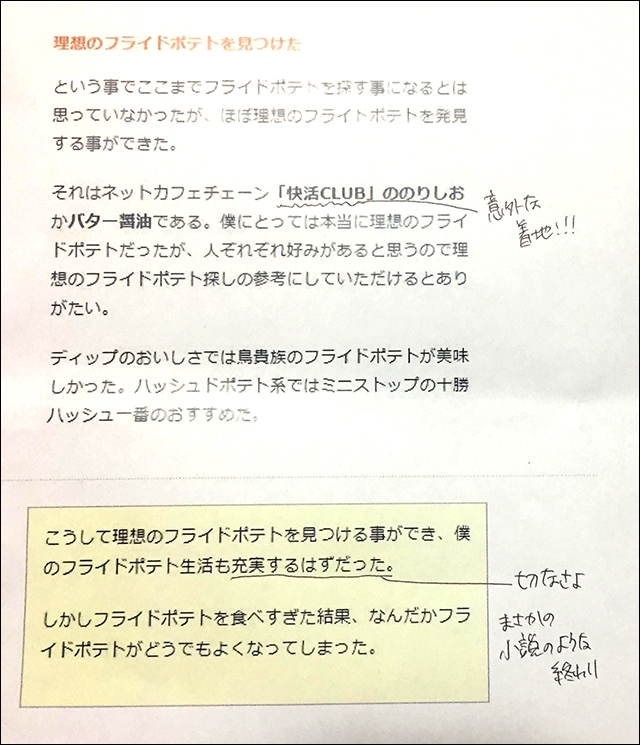 理想のフライドポテトを見つけた
という事でここまでフライドポテトを探す事になるとは
思っていなかったが、ほぼ理想のフライドポテトを発見
する事ができた。
それはネットカフェチェーン「快活CLUB」ののりしお
かバター醤油である。僕にとっては本当に理想のフライ
ドポテトだったが、人ぞれぞれ好みがあると思うので理
想のフライドポテト探しの参考にしていただけるとあり
がたい。
意外な
着地!!!
ディップのおいしさでは鳥貴族のフライドポテトが美味
しかった。ハッシュドポテト系ではミニストップの十勝
ハッシュ一番のおすすめだ。
こうして理想のフライドポテトを見つける事ができ、僕
のフライドポテト生活も充実するはずだった。
切なさよ
しかしフライドポテトを食べすぎた結果、なんだかフラ
イドポテトがどうでもよくなってしまった。
まさかの
小説のような
終わり